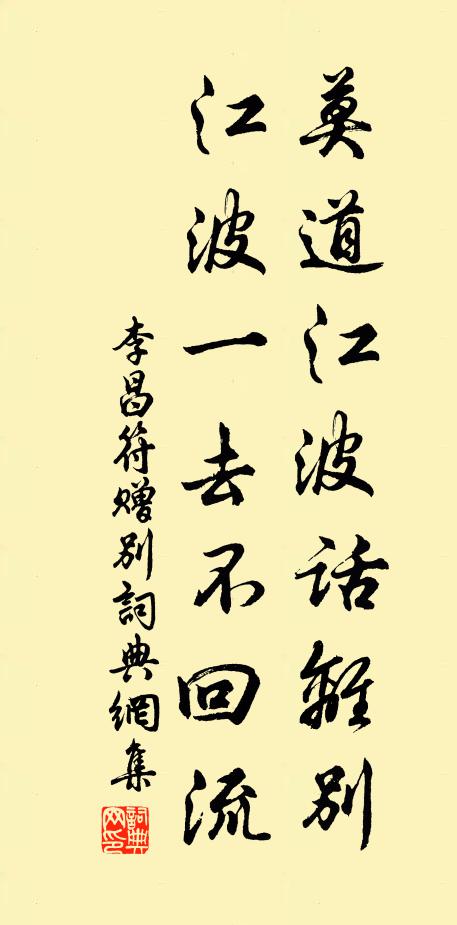 莫道江波話離別
江波一去不回流
李昌符贈別詞典網集
詞典
网印